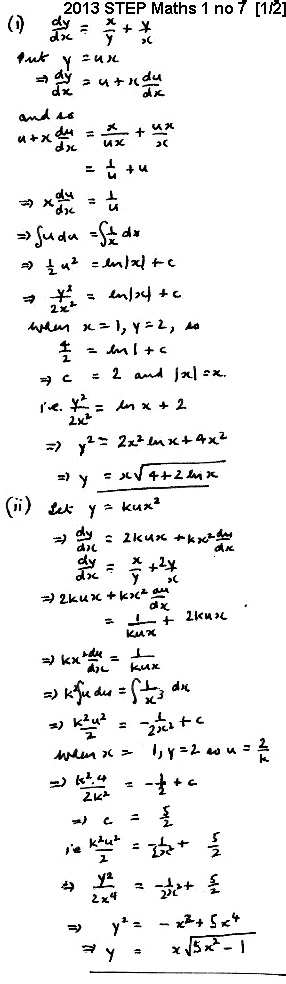 2013 STEP Maths 1 no 7 [1/2]
(i) dy/dx = x/y + y/x
Put y = ux
⇒ dy/dx = u + x du/dx
and so
u + x du/dx = x/ux + ux/x
= 1/u + u
⇒ x du/dx = 1/u
⇒ ∫u du = ∫1/x dx
⇒ ½u² = ln|x| + c
⇒ y²/2x² = ln|x| + c
when x = 1, y = 2, so
4/2 = ln 1 + c
⇒ c = 2 and |x| = x.
i.e. y²/2x² = ln x + 2
⇒ y² = 2x² ln x + 4x²
⇒ y = x√(4 + 2 ln x)
(ii) Let y = kux²
⇒ dy/dx = 2kux + kx² du/dx
dy/dx = x/y + 2y/x
⇒ 2kux + kx² du/dx
= 1/kux + 2kux
⇒ kx² du/dx = 1/kux
⇒ k²∫u du = ∫1/x³ dx
⇒ k²u²/2 = -1/2x² + c
when x = 1, y = 2 so u = 2/k
⇒ k².4/2k² = -½ + c
⇒ c = 5/2
i.e. k²u²/2 = -1/2x² + 5/2
⇒ y²/2x⁴ = -1/2x² + 5/2
⇒ y² = -x² + 5x⁴
⇒ y = x√(5x² - 1)